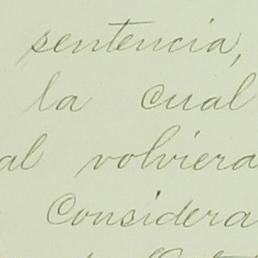 sentencia,
la cual
al volviera
Considera